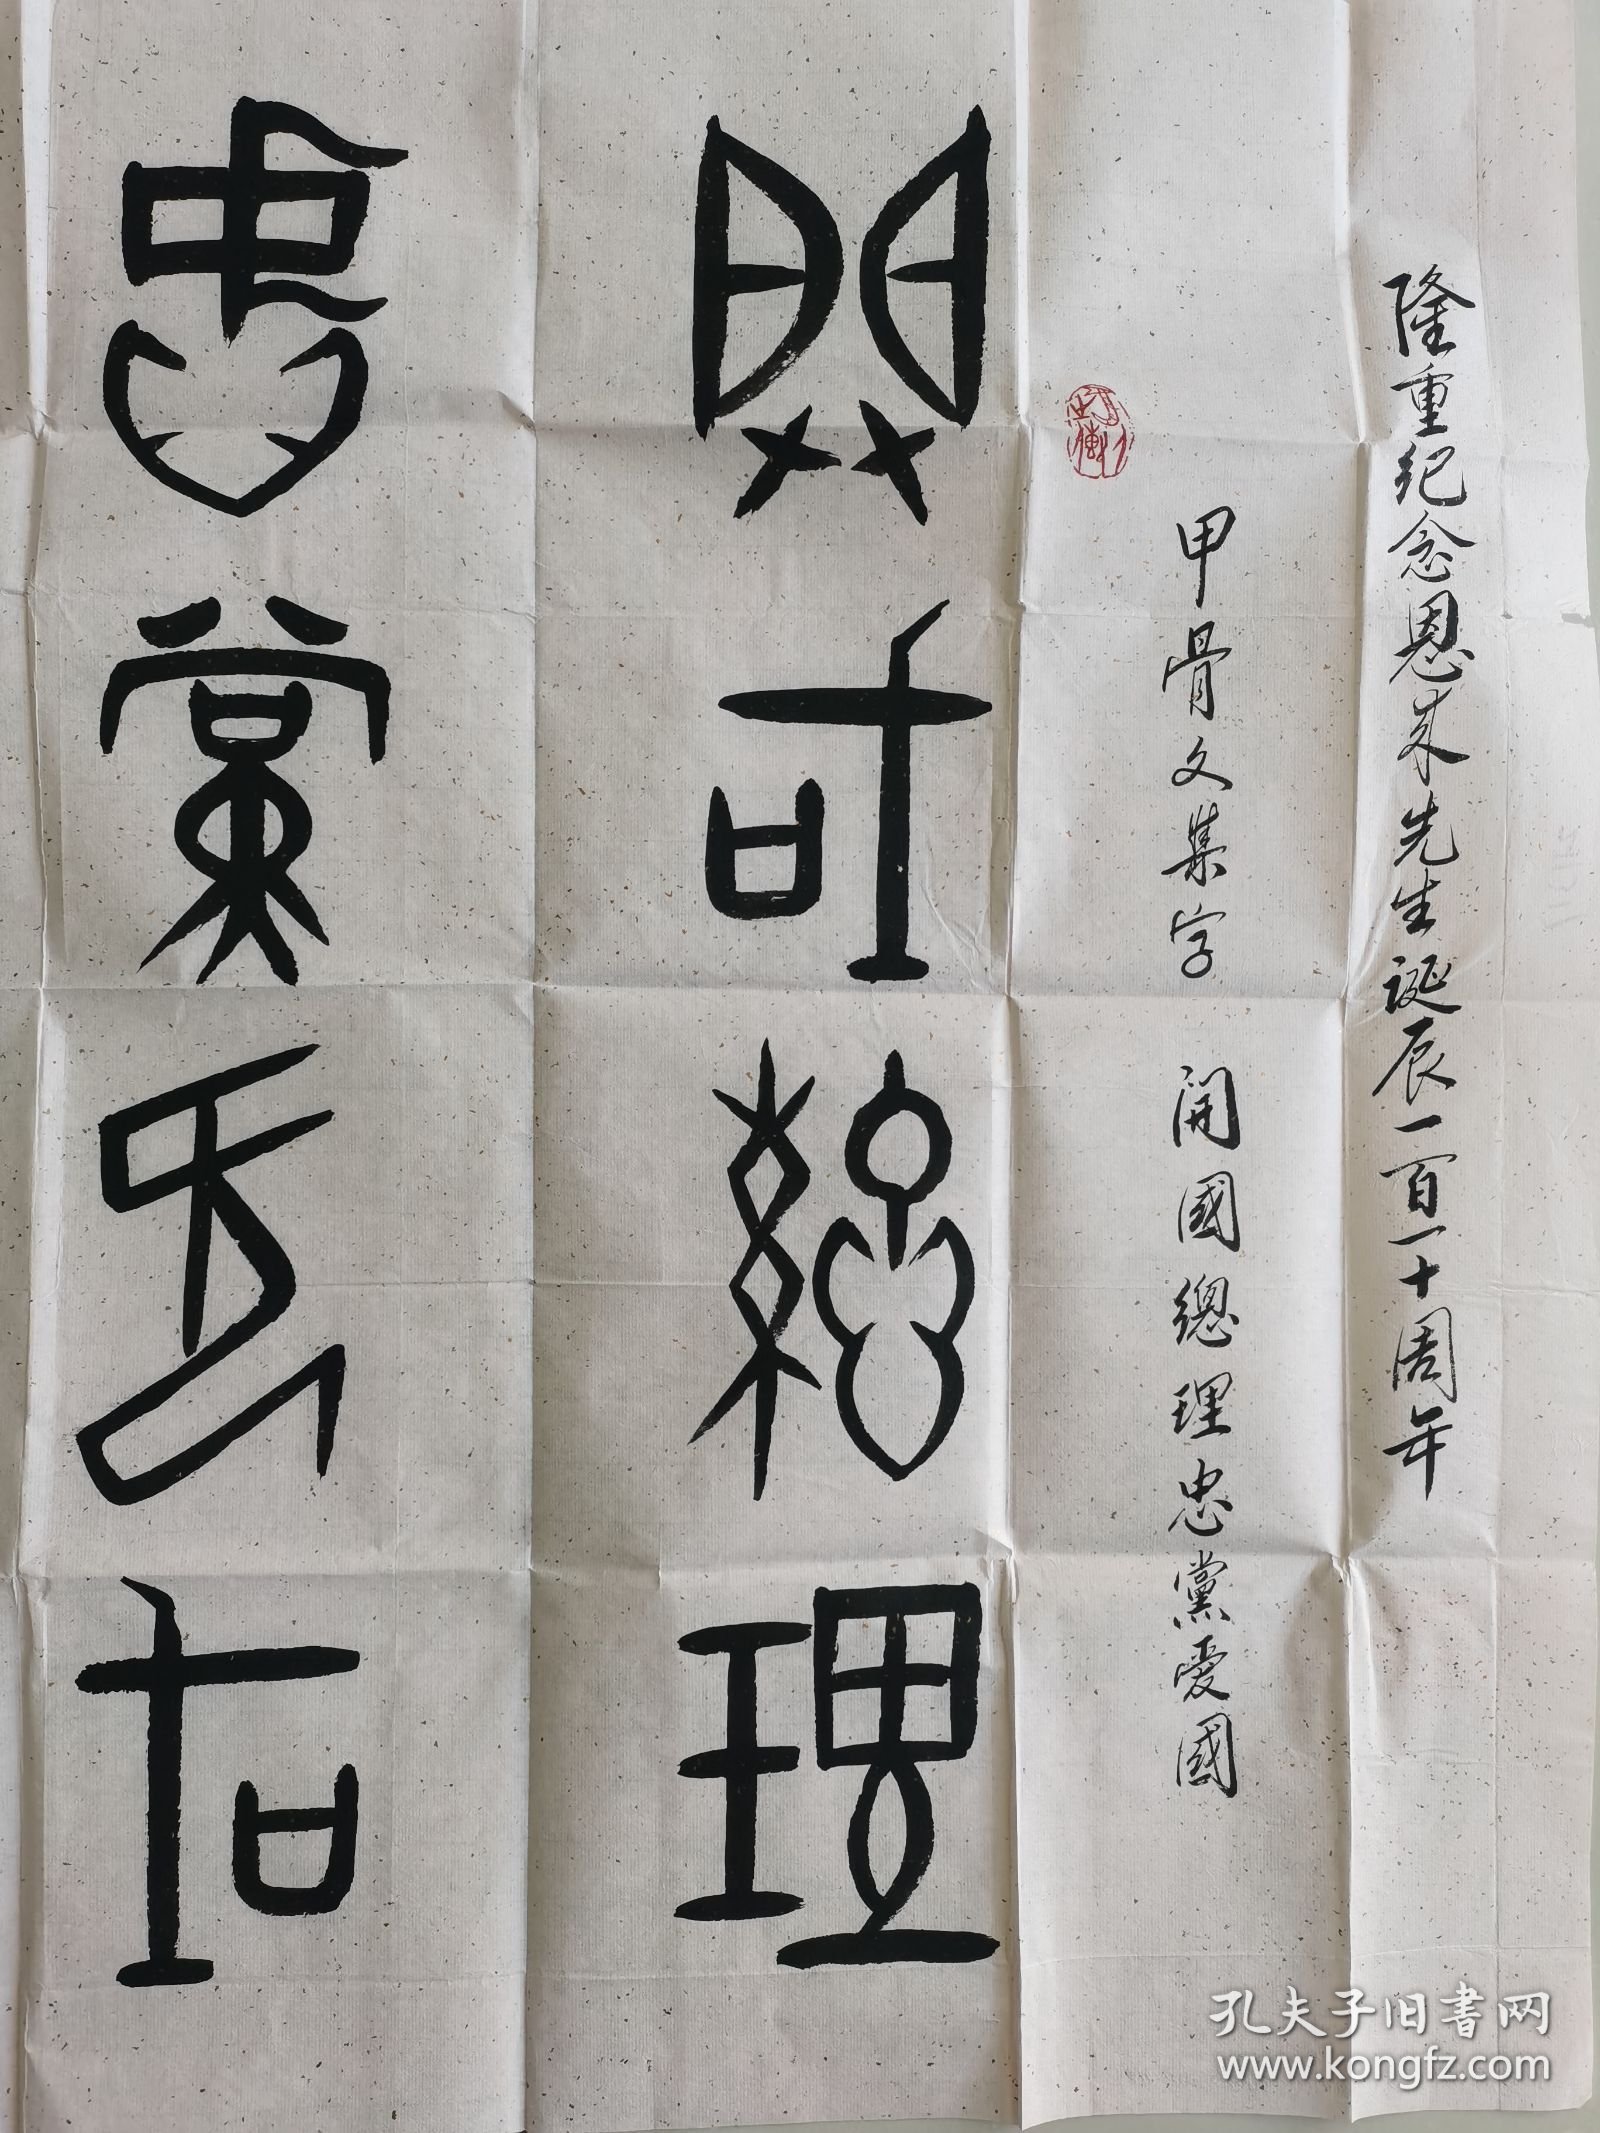 隆重纪念恩来先生诞辰一百一十周年
甲骨文集字 開國總理忠黨愛國
開國總理
忠黨愛國
孔夫子旧书网
www.kongfz.com